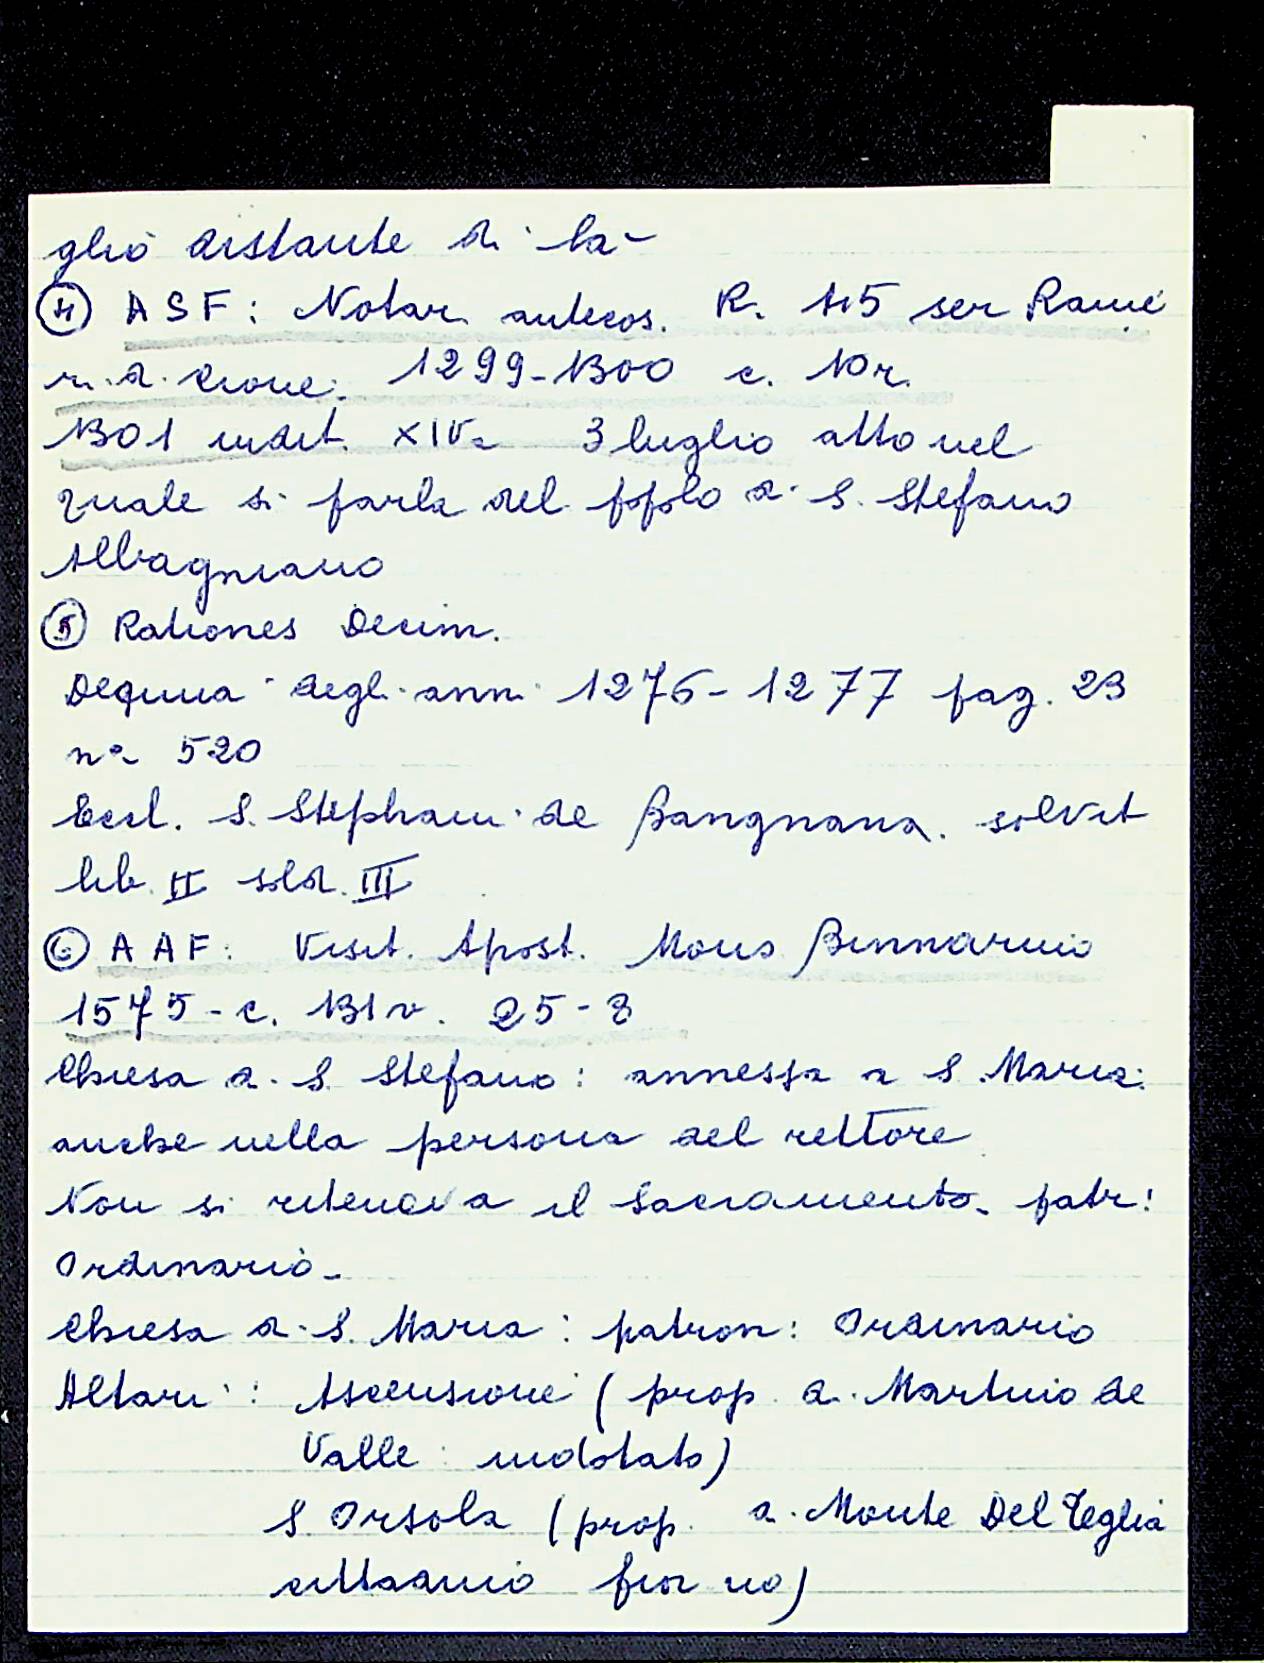 glio distante di là-
④ ASF: Notar. antecos. R. 115 ser Ranie
ri di Cione. 1299-1300 c. 10r.
1301 indit. XIVa 3 luglio atto nel
quale si parla del popolo di S. Stefano
Albagniano
⑤ Rationes Decim.
Decima degli anni 1276-1277 pag. 23
n° 520
Eccl. S. Stephani de Bangnana. solvit
lib. II sold. III
⑥ AAF: Visit. Apost. Mons Binnarinio
1575-c. 131v. 25-8
Chiesa di S. Stefano: annessa a S. Maria:
anche nella persona del rettore
Non si riteneva il Sacramento. patr:
Ordinario-
Chiesa di S. Maria: patron: Ordinario
Altari: Ascensione (prop. di Martino de
Valle: indotato)
S. Orsola (prop. di Monte Del Teglia
cittadino fior no)